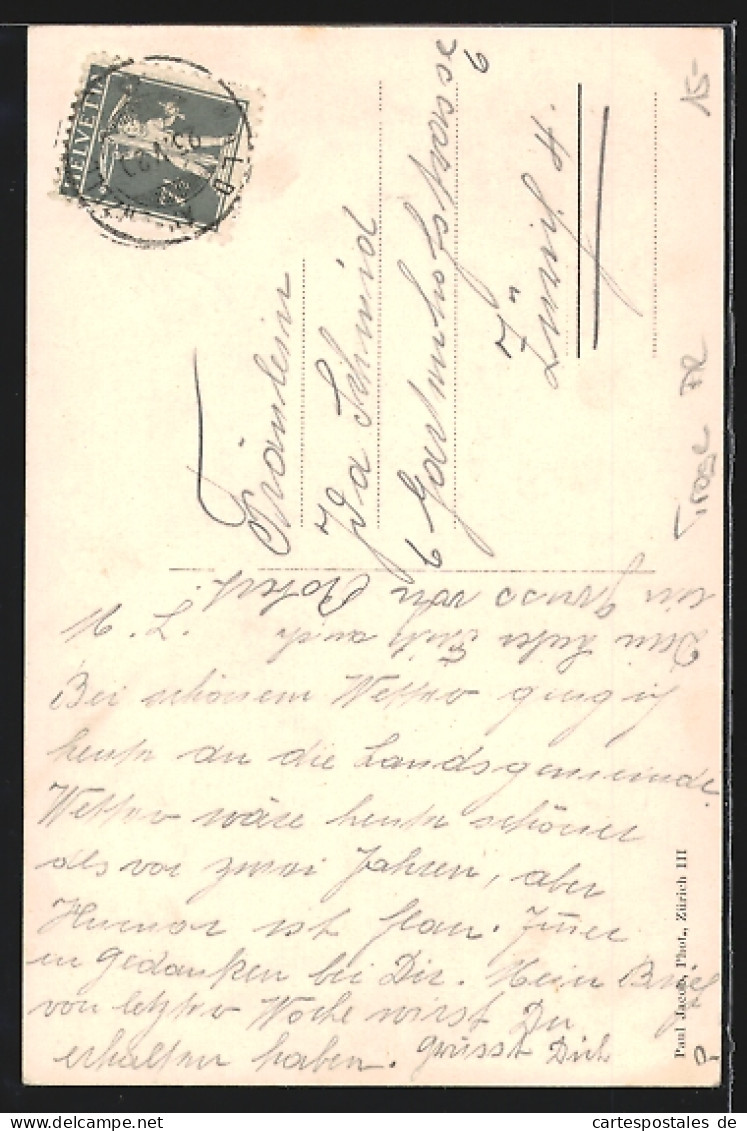 HELVETIA
Fräulein
Ida Schmid
6 Gartenhofstrasse 6
Zürich 4.
M. L.
Bei schönem Wetter ging ich
heute an die Landsgemeinde.
Wetter wäre heute schöner
als vor zwei Jahren, aber
Humor ist flau. Im̅er
in Gedanken bei Dir. Mein Brief
von letzter Woche wirst Du
erhalten haben. Grüsst Dich
Dein lieber Fritz auch
ein Gruss von Robert.
Paul Jacob, Phot., Zürich III
15-
www.cartespostales.de